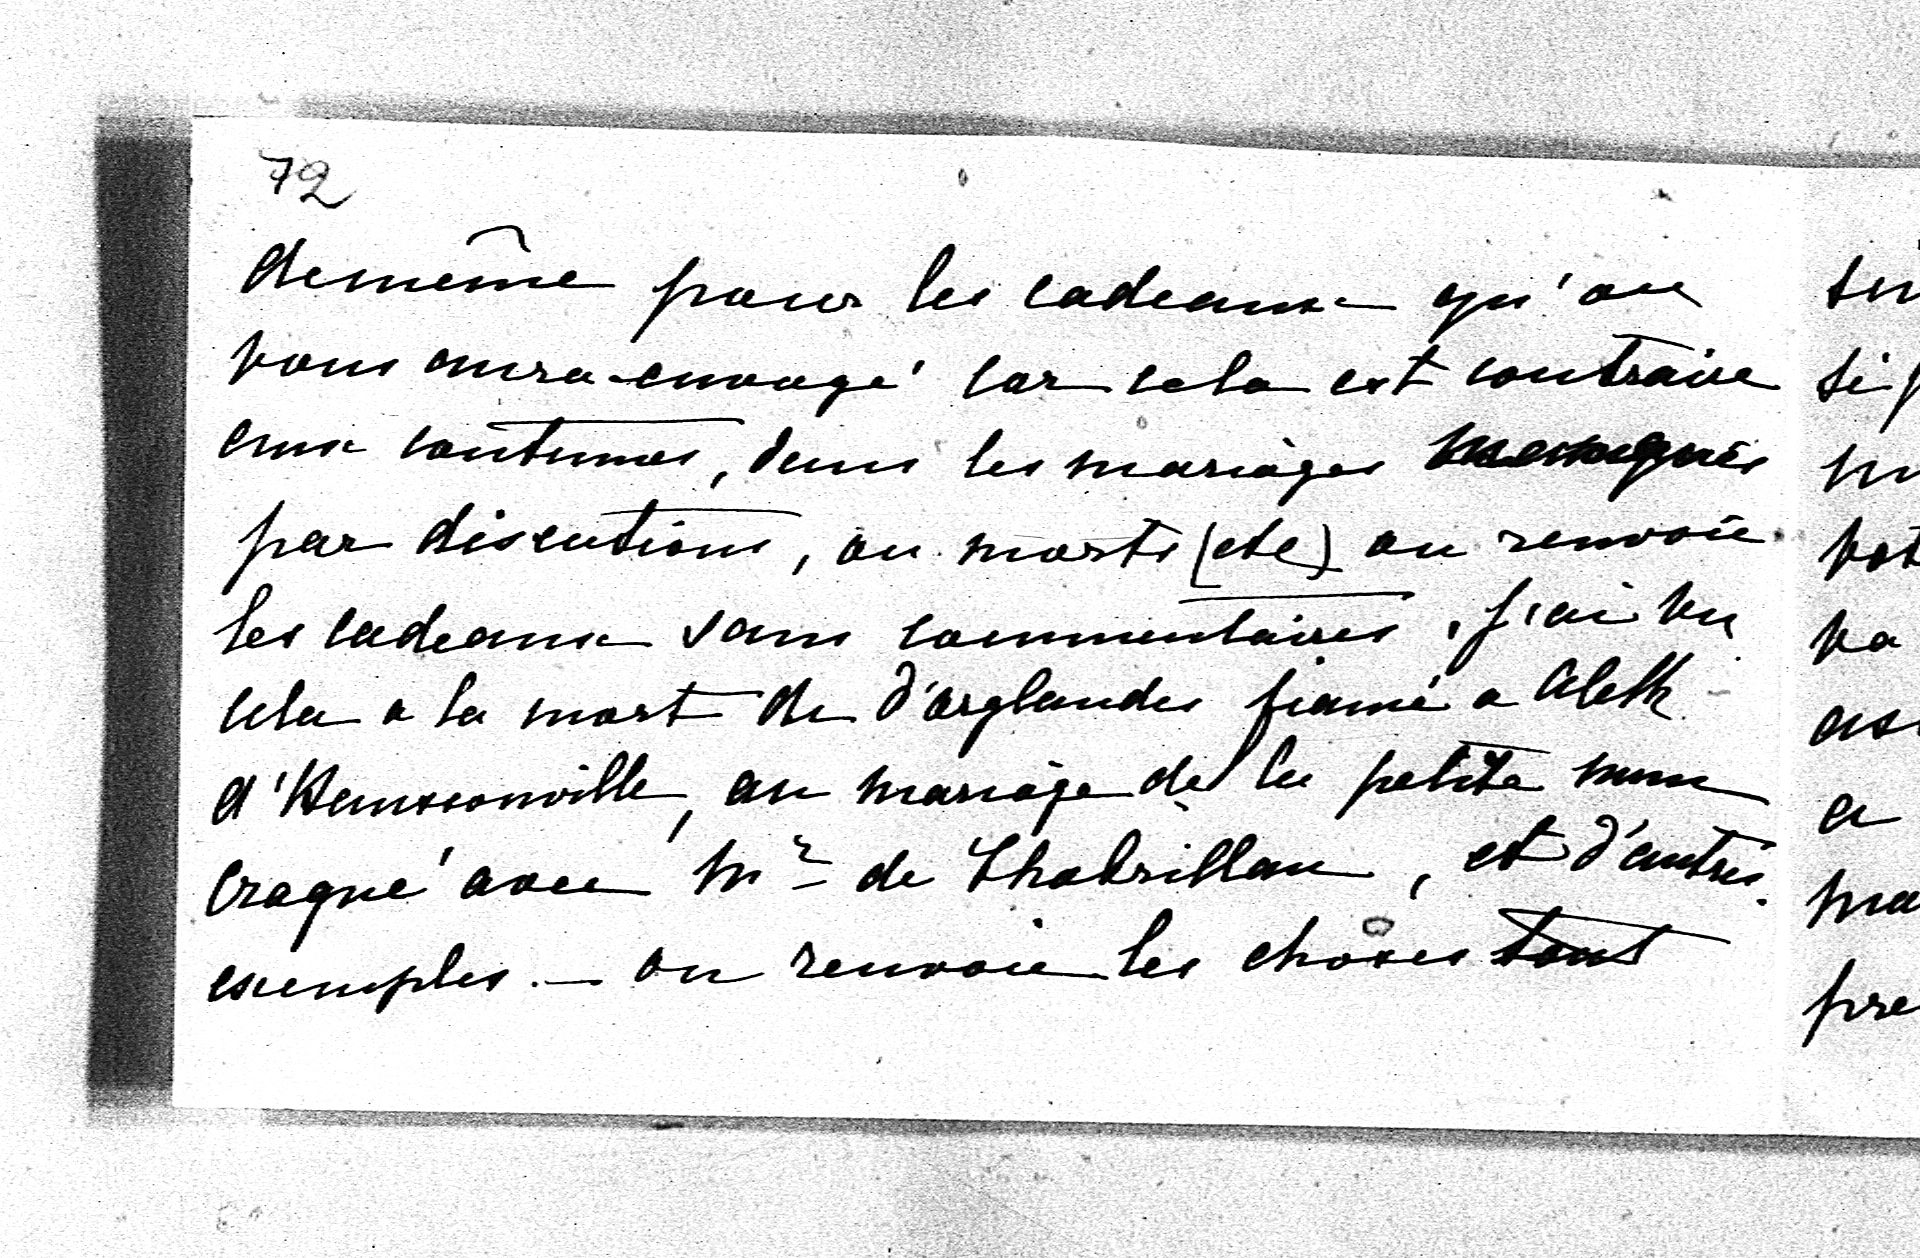 72
demême pour les cadeaux qu'on
vous aura envoyé car cela est contraire
aux coutumes, dans les mariages manqués
par discutions, ou morts (etc) on renvoie
les cadeaux sans commentaires, j'ai vu
cela a la mort de d'arglandes fiancé a Aleth
d'Haussonville, au mariage de la petite
craqué avec Mr de Chabrillan, et d'autres
exemples. — on renvoie les choses tout